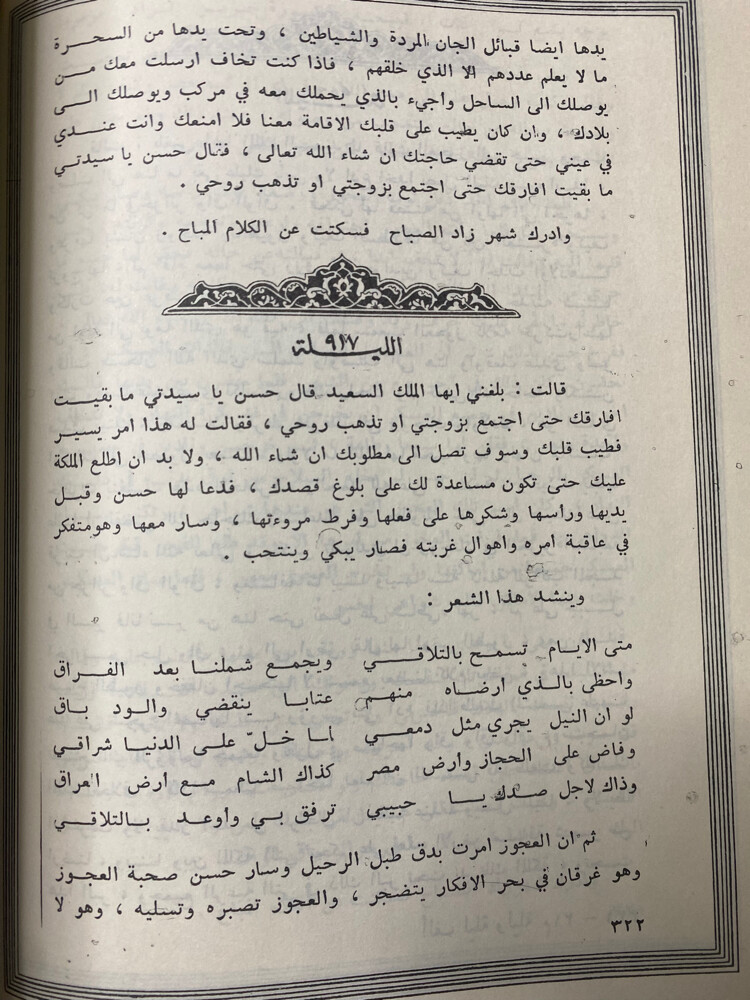 يدها ايضا قبائل الجان المردة والشياطين ، وتحت يدها من السحرة
ما لا يعلم عددهم الا الذي خلقهم ، فاذا كنت تخاف ارسلت معك من
يوصلك الى الساحل واجيء بالذي يحملك معه في مركب ويوصلك الى
بلادك ، وان كان يطيب على قلبك الاقامة معنا فلا امنعك وانت عندي
في عيني حتى تقضي حاجتك ان شاء الله تعالى ، فقال حسن يا سيدتي
ما بقيت افارقك حتى اجتمع بزوجتي او تذهب روحي .
وادرك شهر زاد الصباح فسكتت عن الكلام المباح .
الليلة ٩١٧
قالت : بلغني ايها الملك السعيد قال حسن يا سيدتي ما بقيت
افارقك حتى اجتمع بزوجتي او تذهب روحي ، فقالت له هذا امر يسير
فطيب قلبك وسوف تصل الى مطلوبك ان شاء الله ، ولا بد ان اطلع الملكة
عليك حتى تكون مساعدة لك على بلوغ قصدك ، فدعا لها حسن وقبل
يديها وراسها وشكرها على فعلها وفرط مروءتها ، وسار معها وهومتفكر
في عاقبة امره واهوال غربته فصار يبكي وينتحب .
وينشد هذا الشعر :
متى الايام تسمح بالتلاقي ويجمع شملنا بعد الفراق
واحظى بالذي ارضاه منهم عتابا ينقضي والود باق
لو ان النيل يجري مثل دمعي لما خلّ على الدنيا شراقي
وفاض على الحجاز وأرض مصر كذاك الشام مع أرض العراق
وذاك لاجل صدك يا حبيبي ترفق بي وأوعد بالتلاقي
ثم ان العجوز امرت بدق طبل الرحيل وسار حسن صحبة العجوز
وهو غرقان في بحر الافكار يتضجر ، والعجوز تصبره وتسليه ، وهو لا
٣٢٢